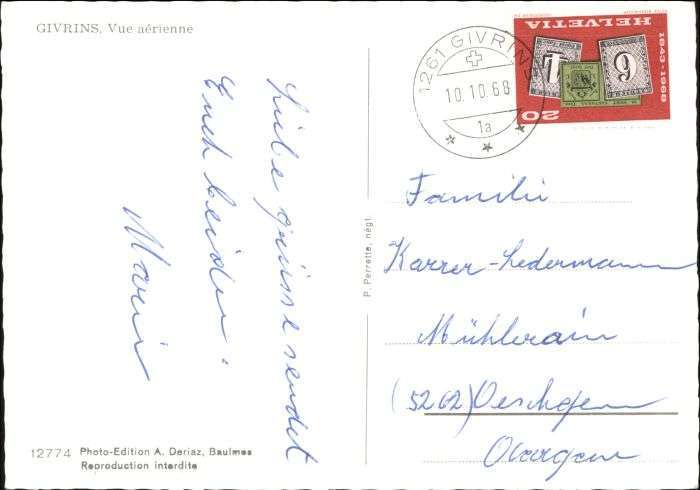 GIVRINS, Vue aérienne
Liebe grüsse sendet
Euch beiden.
12774 Photo-Edition A. Deriaz, Baulmes
Reproduction interdite
P. Perrette, négt.
1261 GIVRINS
10.10.68
1a
HELVETIA
1843-1968
20
Familie
Karrer-Ledermann
Mühlerain
(5262) Oeschgen